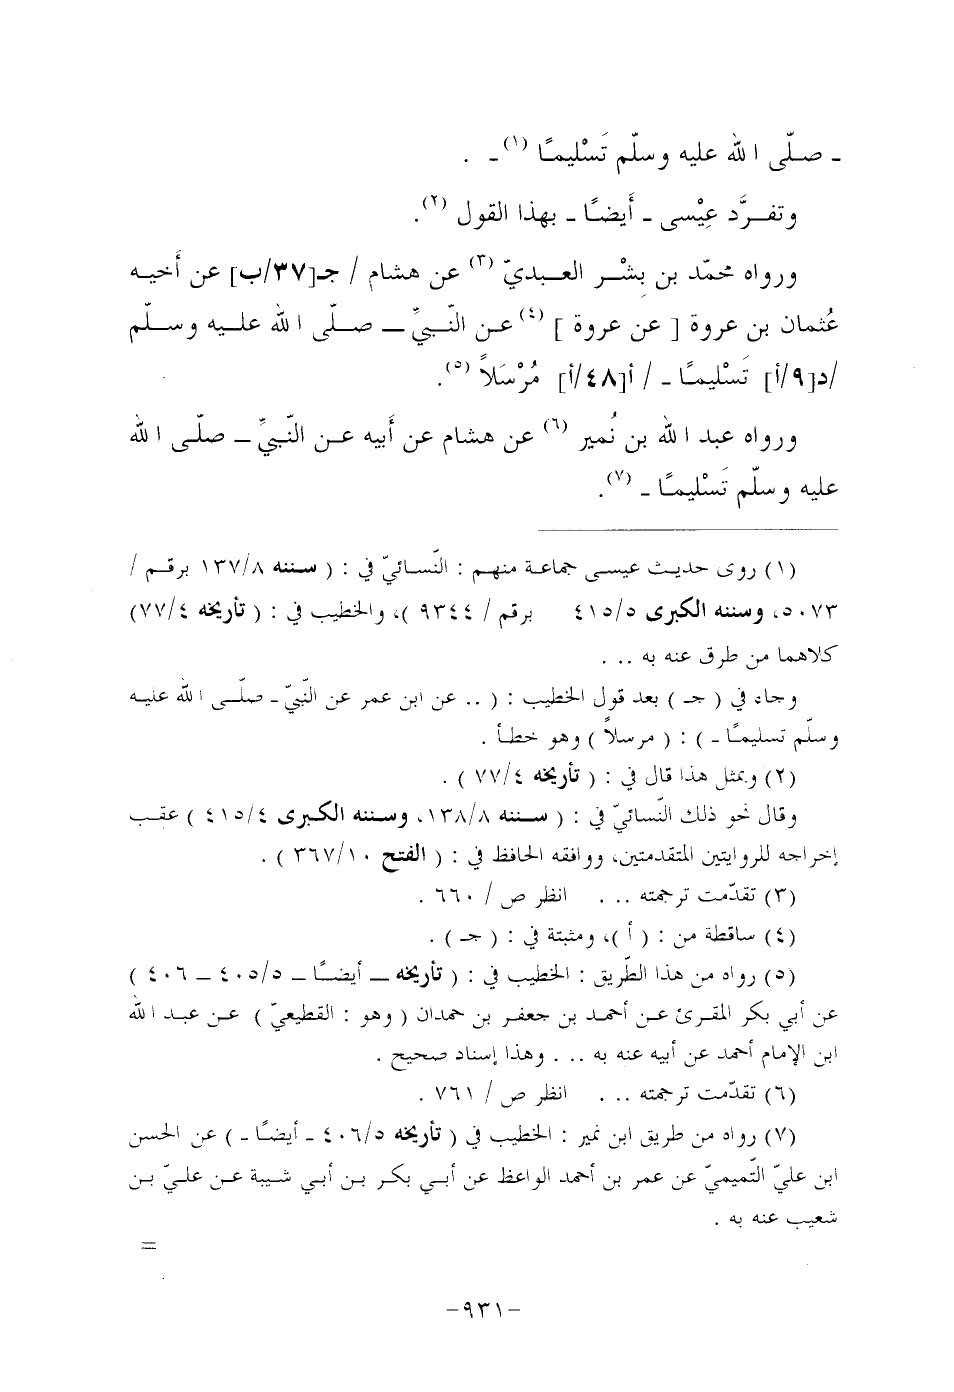 ـ صلّى الله عليه وسلّم تَسْليمًا (١)ـ .
وتفرَّد عِيْسى ـ أَيضًا ـ بهذا القول (٢).
ورواه محمّد بن بشْر العبديّ (٣) عن هشام / جـ[٣٧/ب] عن أَخيه
عُثمان بن عروة [ عن عروة ] (٤) عن النّبيِّ ـ صلّى الله عليه وسلّم
/د[٩/أ] تَسْليمًا ـ / أ[٤٨/أ] مُرْسَلاً (٥).
ورواه عبد الله بن نُمير (٦) عن هشام عن أَبيه عن النّبيِّ ـ صلّى الله
عليه وسلّم تَسْليمًا ـ (٧).
(١) روى حديث عيسى جماعة منهم : النّسائيّ في : ( سننه ١٣٧/٨ برقم /
٥٠٧٣، وسننه الكبرى ٤١٥/٥ برقم / ٩٣٤٤ )، والخطيب في : ( تأريخه ٧٧/٤)
كلاهما من طرق عنه به ... .
وجاء في ( جـ ) بعد قول الخطيب : ( .. عن ابن عمر عن النّبيّ ـ صلّى الله عليه
وسلّم تسليمًا ـ ) : ( مرسلاً ) وهو خطأ .
(٢) وبمثل هذا قال في : ( تأريخه ٧٧/٤ ) .
وقال نحو ذلك النّسائيّ في : ( سننه ١٣٨/٨، وسننه الكبرى ٤١٥/٤ ) عقب
إخراجه للروايتين المتقدمتين، ووافقه الحافظ في : ( الفتح ٣٦٧/١٠ ) .
(٣) تقدّمت ترجمته ... . انظر ص / ٦٦٠ .
(٤) ساقطة من : ( أ )، ومثبتة في : ( جـ ) .
(٥) رواه من هذا الطّريق : الخطيب في : ( تأريخه ـ أيضًا ـ ٤٠٥/٥ ـ ٤٠٦ )
عن أبي بكر المقرئ عن أحمد بن جعفر بن حمدان ( وهو : القطيعيّ ) عن عبد الله
ابن الإمام أحمد عن أبيه عنه به ... . وهذا إسناد صحيح .
(٦) تقدّمت ترجمته ... . انظر ص / ٧٦١ .
(٧) رواه من طريق ابن نمير : الخطيب في ( تأريخه ٤٠٦/٥ ـ أيضًا ـ ) عن الحسن
ابن عليّ التّميميّ عن عمر بن أحمد الواعظ عن أبي بكر بن أبي شيبة عن عليّ بن
شعيب عنه به .
=
-٩٣١-